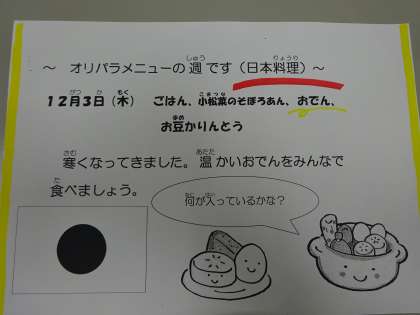 ～ オリパラメニューの週です（日本料理）～
１２月３日（木） ごはん、小松菜のそぼろあん、おでん、
お豆かりんとう
寒くなってきました。温かいおでんをみんなで
食べましょう。
何が入っているかな？